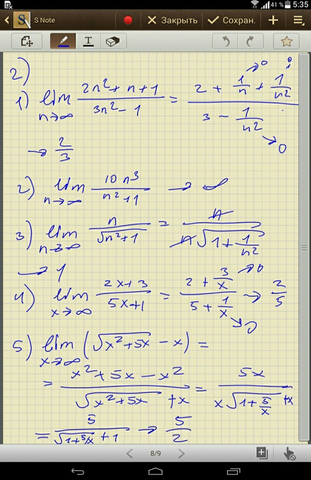 41 % 5:35
S Note Закрыть Сохран.
2)
1) lim n→∞ (2n² + n + 1)/(3n² − 1) = (2 + 1/n →0 + 1/n²)/(3 − 1/n² →0)
→ 2/3
2) lim n→∞ 10n³/(n² + 1) → ∞
3) lim n→∞ n/√(n² + 1) = n/(n√(1 + 1/n²))
→ 1
4) lim x→∞ (2x + 3)/(5x + 1) = (2 + 3/x →0)/(5 + 1/x →0) → 2/5
5) lim x→∞ (√(x² + 5x) − x) =
= (x² + 5x − x²)/(√(x² + 5x) + x) = 5x/(x√(1 + 5/x) + x)
= 5/(√(1 + 5/x) + 1) → 5/2
8/9